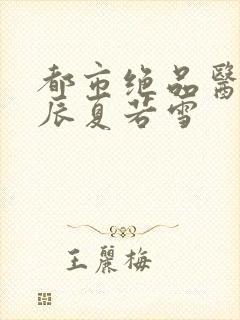 都市绝品醫
辰夏若雪
王麗梅